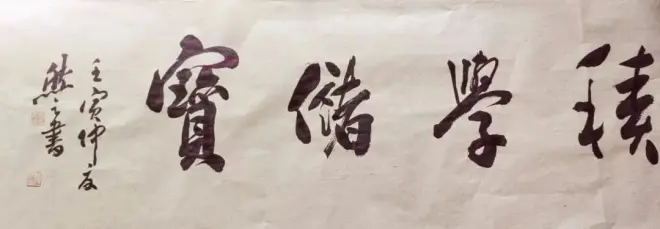 積學儲寶
壬寅仲夏
熊之書